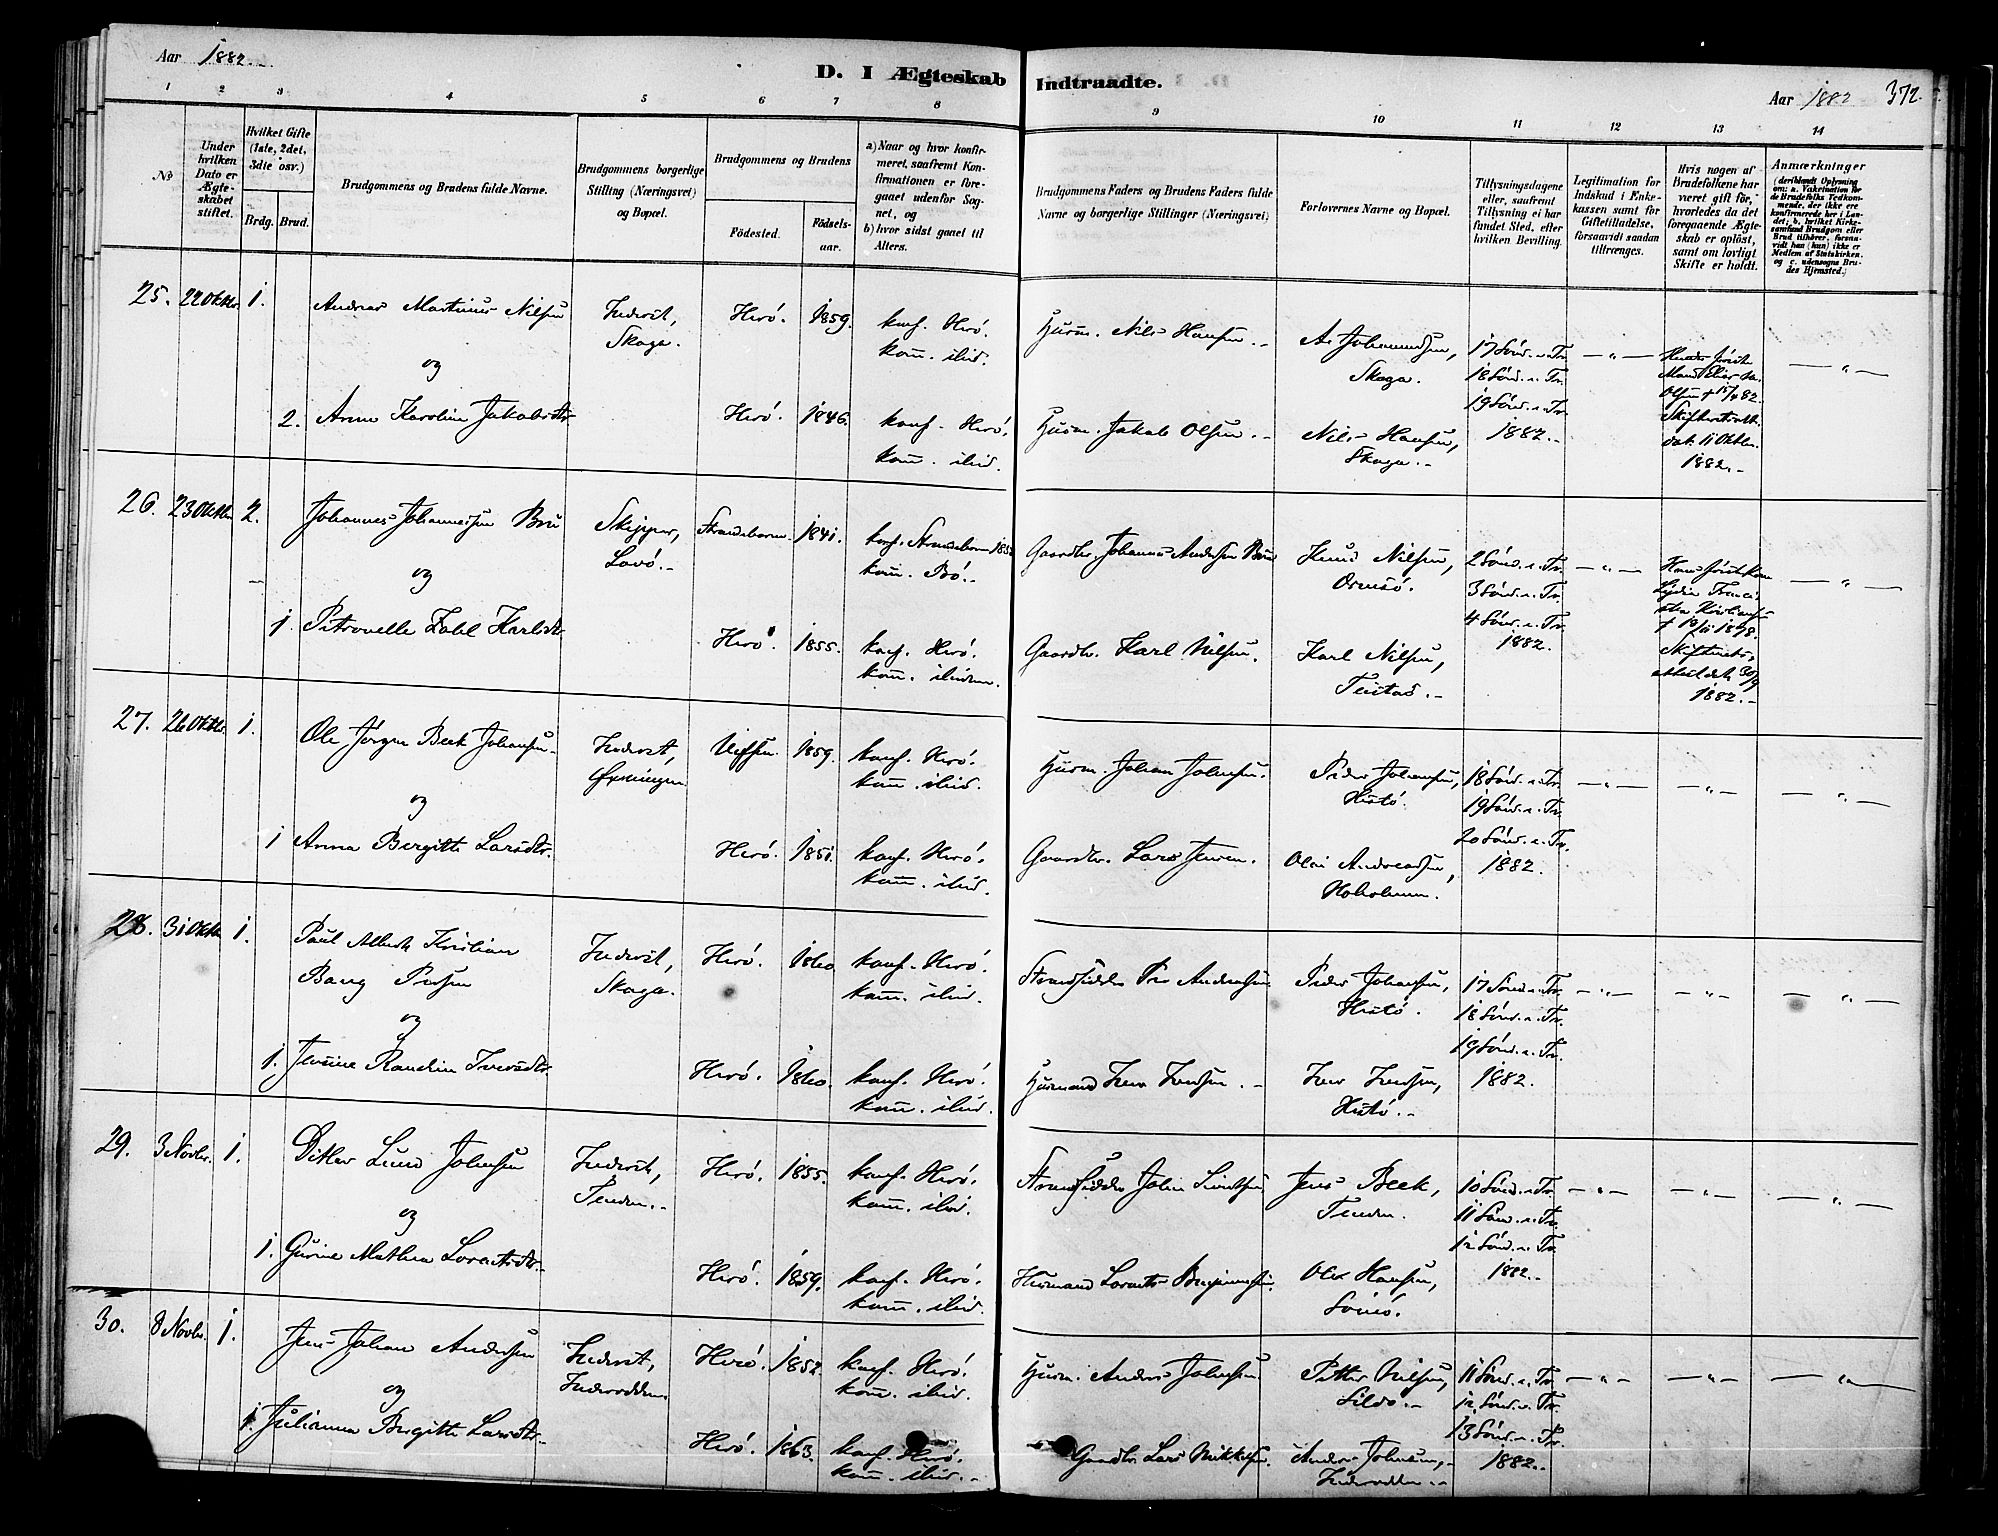 Aar 1882.
D. I Ægteskab Indtraadte.
Aar 1882
372.
1 2 3 4 5 6 7 8 9 10 11 12 13 14
No
Under hvilken Dato er Ægteskabet stiftet.
Hvilket Gifte (1ste, 2det, 3die osv.)
Brdg. Brud.
Brudgommens og Brudens fulde Navne.
Brudgommens borgerlige Stilling (Næringsvei) og Bopæl.
Brudgommens og Brudens
Födested.
Födselsaar.
a) Naar og hvor konfirmeret, saafremt Konfirmationen er foregaaet udenfor Sognet, og
b) hvor sidst gaaet til Alters.
Brudgommens Faders og Brudens Faders fulde Navne og borgerlige Stillinger (Næringsvei)
Forlovernes Navne og Bopæl.
Tillysningsdagene eller, saafremt Tillysning ei har fundet Sted, efter hvilken Bevilling.
Legitimation for Indskud i Enkekassen samt for Giftetilladelse, forsaavidt saadan tiltrænges.
Hvis nogen af Brudefolkene har været gift för, hvorledes da det foregaaende Ægteskab er oplöst, samt om lovligt Skifte er holdt.
Anmærkninger
(deriblandt Oplysning om: a. Vakcination for de Brudefolks Vedkommende, der ikke ere konfirmerede her i Landet; b. hvilket Kirkesamfund Brudgom eller Brud tilhörer, forsaavidt han (hun) ikke er Medlem af Statskirken, og c. udensogns Brudes Hjemsted.)
25. 22 Oktbr. 1. Andreas Martinus Nilsen
Inderst, Skaga.
Herö. 1859. konf. Herö.
kom. ibid.
Husm. Nils Hansen.
Skaga.
17 Sönd. e. Tr.
18 Sönd. e. Tr.
19 Sönd. e. Tr.
1882.
Olsen + 15/4 82.
dat. 11 Oktbr.
1882.
og
2. Anne Karoline Jakobsdtr
Herö. 1846. konf. Herö.
kom. ibid.
Husm. Jakob Olsen.
Nils Hansen,
Skaga.
26. 23 Oktbr 2. Johannes Johannessen Bru
Skipper,
Lovö.
Strandebarm. 1841. konf. Strandebarm
kom. Bö.
Gaardbr. Johannes Andersen Bru
Knud Nilsen,
2 Sönd. e. Tr.
3 Sönd. e. Tr.
4 Sönd. e. Tr.
1882.
1882.
og
1. Petronelle Karlsdtr.
Herö. 1855. konf. Herö.
kom. ibidem.
Gaardbr. Karl Nilsen.
Karl Nilsen,
27. 26 Oktbr. 1. Ole Jørgen Beck Johansen
Inderst,
Øxningen
Vefsen. 1859. konf. Herö.
kom. ibid.
Husm. Johan Johnsen.
Peder Johansen,
18 Sönd. e. Tr.
19 Sönd. e. Tr.
20 Sönd. e. Tr.
1882.
og
1 Anna Bergitte Larsdtr.
Herö. 1851. konf. Herö.
kom. ibid.
Gaardbr. Lars Jensen.
Andreassen,
28. 31 Oktbr 1. Paul Albert Kristian
Bang Persen
Inderst,
Skaga.
Herö. 1860. konf. Herö.
kom. ibid.
Strandsidder Per Andersen
Peder Johansen,
17 Sönd. e. Tr.
18 Sönd. e. Tr.
19 Sönd. e. Tr.
1882.
og
1. Jensine Randine Iversdtr.
Herö. 1860. konf. Herö.
kom. ibid.
Husmand Iver Iversen.
Iver Iversen,
29. 3 Novbr. 1. Ditlev Lund Johnsen
Inderst,
Tenden.
Herö. 1855. konf. Herö.
kom. ibid.
Strandsidder John
Jens Beck,
Tenden.
10 Sönd. e. Tr.
11 Sönd. e. Tr.
12 Sönd. e. Tr.
1882.
og
1. Gurine Mathea Lorentsdtr.
Herö. 1859. konf. Herö.
kom. ibid.
Husmand Lorents Benjaminsen.
Hansen,
30. 8 Novbr. 1. Jens Johan Andersen
Inderst,
Herö. 1852. konf. Herö.
kom. ibid.
Husm. Anders Johnsen
Petter Nilsen,
11 Sönd. e. Tr.
12 Sönd. e. Tr.
13 Sönd. e. Tr.
1882.
og
1. Julianna Bergitte Larsdtr.
Herö. 1863. konf. Herö.
kom. ibid.
Gaardbr. Lars Mikkelsen.
Anders Johnsen,